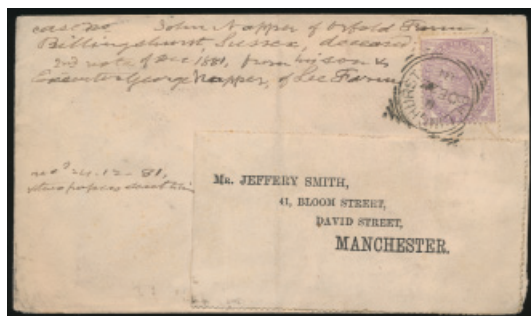 case no John Napper of Orfold Farm,
Billingshurst, Sussex, deceased
2nd note of Dec 1881, from his son &
Executor George Napper, of Lee Farm
24.12.81,
Mr. JEFFERY SMITH,
41, BLOOM STREET,
DAVID STREET,
MANCHESTER.